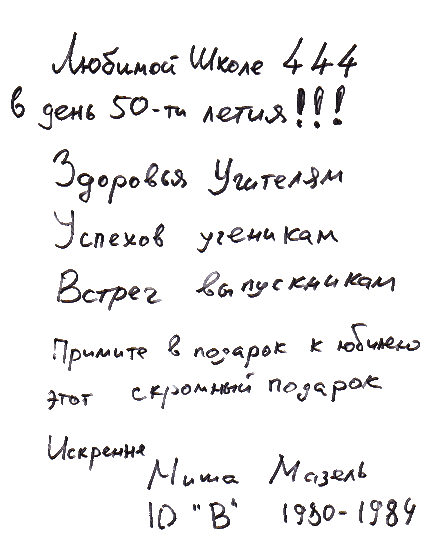 Любимой Школе 444
в день 50-ти летия!!!
Здоровья Учителям
Успехов ученикам
Встреч выпускникам
Примите в подарок к юбилею
этот скромный подарок
Искренне
Миша Мазель
10 "В" 1980-1984